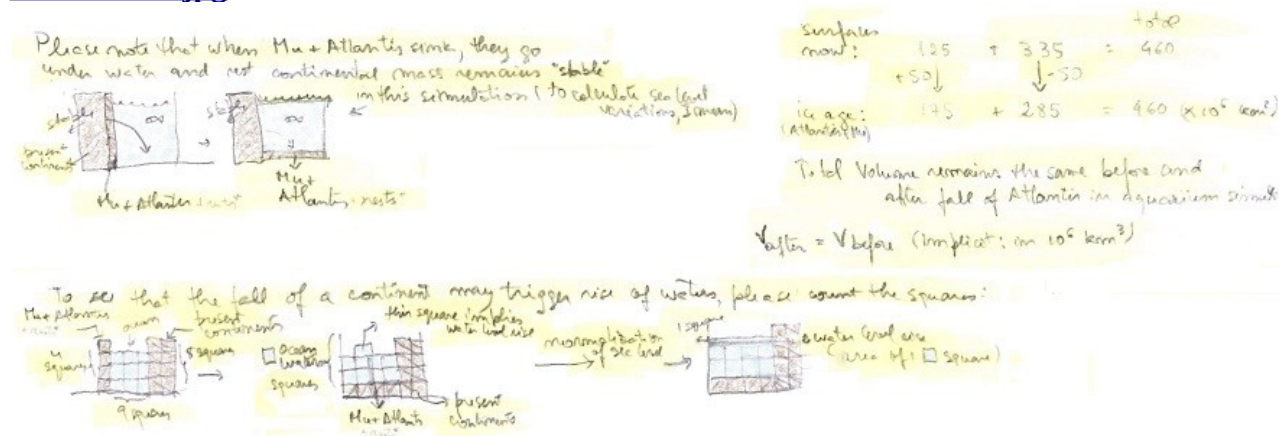 Please note that when Mu + Atlantis sink, they go
under water and rest continental mass remains "stable"
in this simulation (to calculate sea level
variations, I mean)
stable
present
continent
Mu + Atlantis
stable
Mu +
Atlantis "rests"
surfaces
total
now: 125 + 335 = 460
+50 -50
ice age: 175 + 285 = 460 (x 10⁶ km²)
(Atlantis + Mu)
Total Volume remains the same before and
after fall of Atlantis in aquarium
V after = V before (implicit: in 10⁶ km³)
To see that the fall of a continent may trigger rise of waters, please count the squares:
Mu + Atlantis
ocean
present
continents
4
squares
5 squares
9 squares
□ ocean
water
squares
this square implies
water level rise
Mu + Atlantis
present
continents
of sea level
1 square
water level rise
(area of 1 □ square)